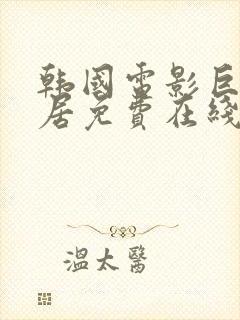 韩国电影巨
居免费在线
溫太醫